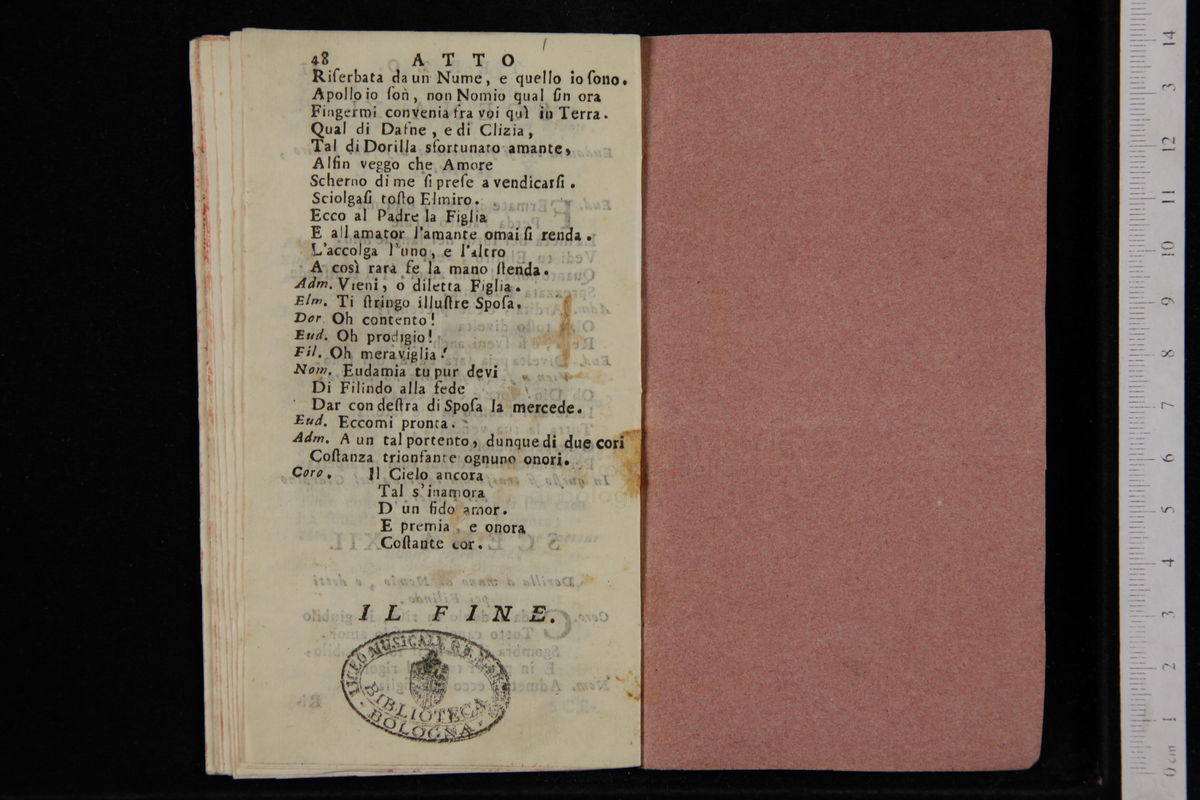 48 ATTO
Riſerbata da un Nume, e quello io ſono.
Apollo io ſon, non Nomio qual ſin ora
Fingermi convenia fra voi quì in Terra.
Qual di Dafne, e di Clizia,
Tal di Dorilla sfortunato amante,
Alfin veggo che Amore
Scherno di me ſi preſe a vendicarſi.
Sciolgaſi toſto Elmiro.
Ecco al Padre la Figlia
E all amator l'amante omai ſi renda.
L'accolga l'uno, e l'altro
A così rara fe la mano ſtenda.
Adm. Vieni, o diletta Figlia.
Elm. Ti ſtringo illuſtre Spoſa.
Dor. Oh contento!
Eud. Oh prodigio!
Fil. Oh meraviglia!
Nom. Eudamia tu pur devi
Di Filindo alla fede
Dar con deſtra di Spoſa la mercede.
Eud. Eccomi pronta.
Adm. A un tal portento, dunque di due cori
Coſtanza trionfante ognuno onori.
Coro. Il Cielo ancora
Tal s'inamora
D'un fido amor.
E premia, e onora
Coſtante cor.
IL FINE.
LICEO MUSICALE
BIBLIOTECA
BOLOGNA
0 cm 1 2 3 4 5 6 7 8 9 10 11 12 3 14